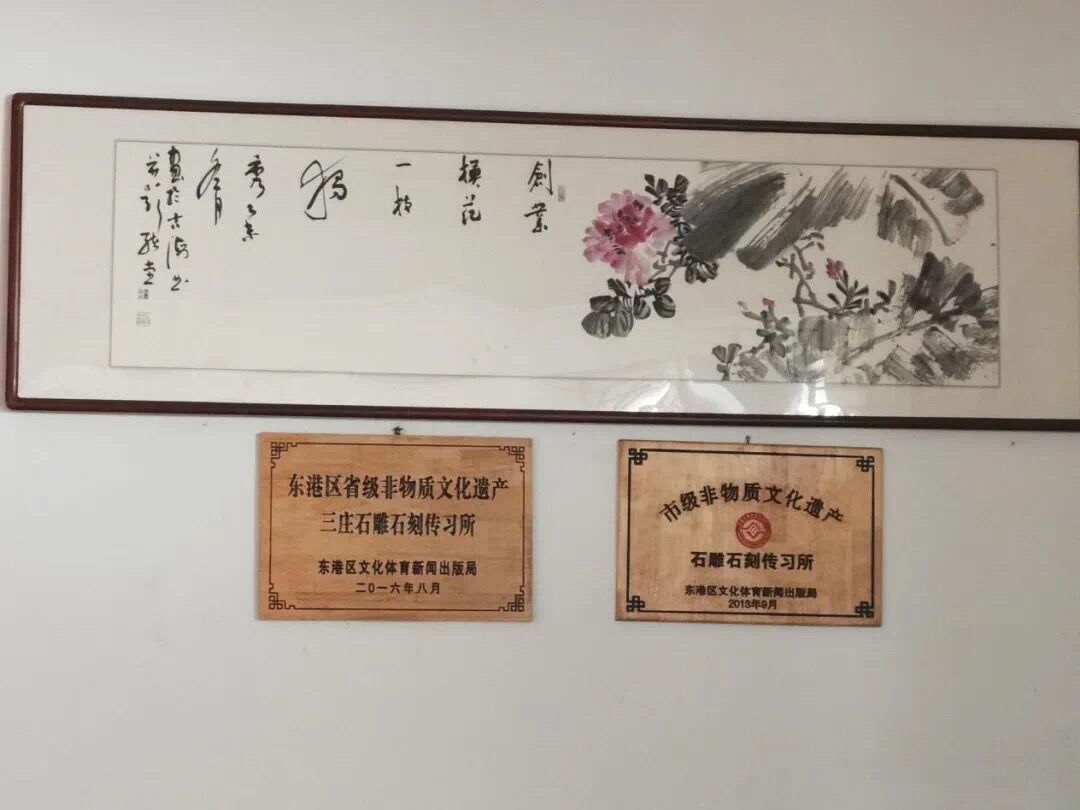 創業
模范
一枝
独
秀
画於
東港区省级非物质文化遗产
三庄石雕石刻传习所
东港区文化体育新闻出版局
二〇一六年八月
市级非物质文化遗产
石雕石刻传习所
东港区文化体育新闻出版局
2013年9月